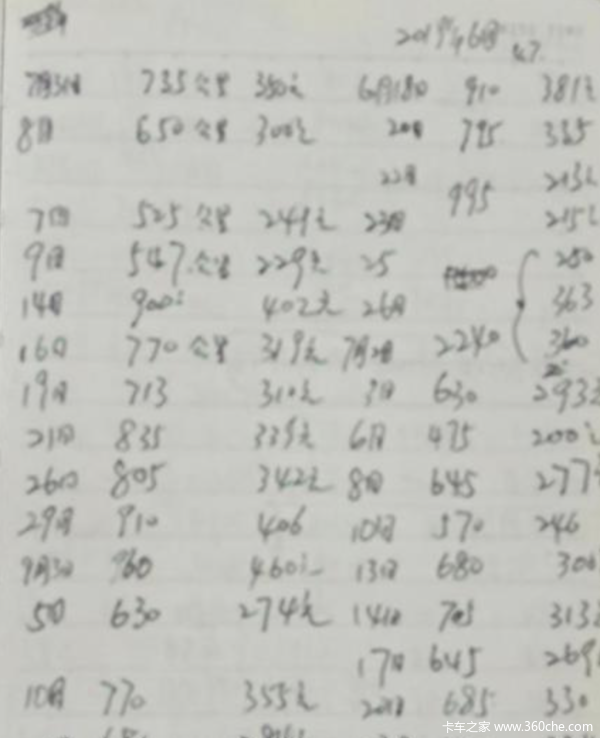 2019年6月
7月31日 735公里 350元 6月18日 910 381元
8日 650公里 300元 20日 795 335
22日 995 213元
7日 525公里 249元 23日 215元
9日 547公里 229元 25 250
14日 900 402元 26日 363
16日 770公里 319元 7月2日 2240 360
19日 713 310元 3日 630 293元
21日 835 339元 6日 475 200元
26日 805 342元 8日 645 277元
29日 910 406 10日 570 246
9月3日 960 460元 13日 680 306
5日 630 274元 14日 705 313元
17日 645 269
10日 770 355元 20日 685 330
卡车之家 www.360che.com